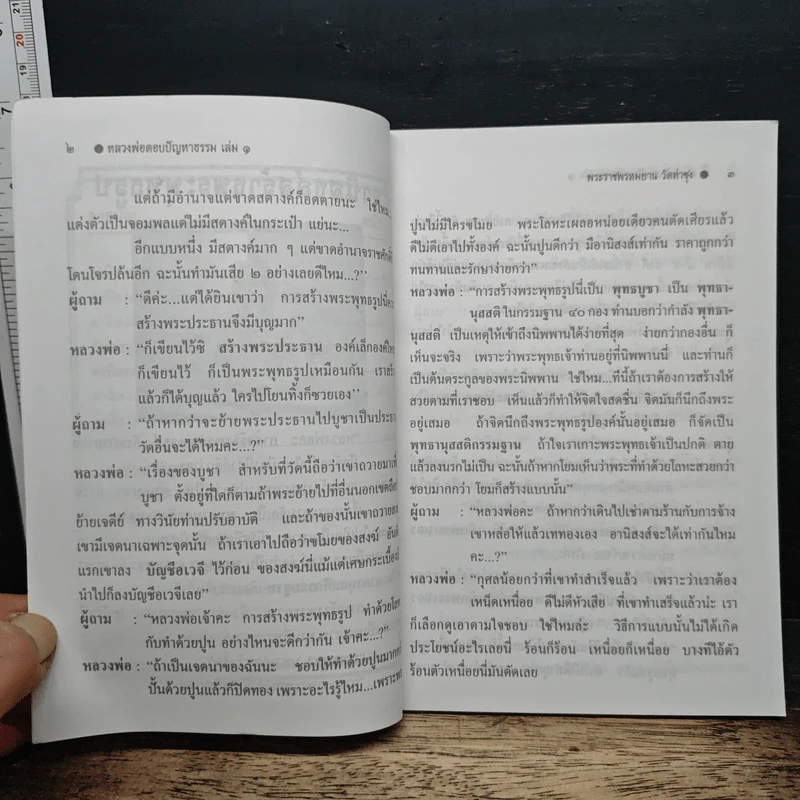 ๒ ● หลวงพ่อตอบปัญหาธรรม เล่ม ๑
แต่ถ้ามีอำนาจแต่ขาดสตางค์ก็อดตายนะ ใช่ไหม
แต่งตัวเป็นจอมพลแต่ไม่มีสตางค์ในกระเป๋า แย่นะ...
อีกแบบหนึ่ง มีสตางค์มาก ๆ แต่ขาดอำนาจราชศักดิ์
โดนโจรปล้นอีก ฉะนั้นทำมันเสีย ๒ อย่างเลยดีไหม...?"
ผู้ถาม : "ดีค่ะ...แต่ได้ยินเขาว่า การสร้างพระพุทธรูปนี่
สร้างพระประธานจึงมีบุญมาก"
หลวงพ่อ : "ก็เขียนไว้ซิ สร้างพระประธาน องค์เล็กองค์
ก็เขียนไว้ ก็เป็นพระพุทธรูปเหมือนกัน เรา
แล้วก็ได้บุญแล้ว ใครไปโยนทิ้งก็ซวยเอง"
ผู้ถาม : "ถ้าหากว่าจะย้ายพระประธานไปบูชาเป็นประธาน
วัดอื่นจะได้ไหมคะ...?"
หลวงพ่อ : "เรื่องของบูชา สำหรับที่วัดนี้ถือว่าเขาถวายมา
บูชา ตั้งอยู่ที่ใดก็ตามถ้าพระย้ายไปที่อื่นนอกเขต
ย้ายเจดีย์ ทางวินัยท่านปรับอาบัติ และถ้าของนั้นเขาถวาย
เขามีเจตนาเฉพาะจุดนั้น ถ้าเราเอาไปถือว่าขโมยของสงฆ์
แรกเขาลง บัญชีอเวจี ไว้ก่อน ของสงฆ์นี่แม้แต่เศษกระเบื้อง
นำไปก็ลงบัญชีอเวจีเลย"
ผู้ถาม : "หลวงพ่อเจ้าคะ การสร้างพระพุทธรูป ทำด้วย
กับทำด้วยปูน อย่างไหนจะดีกว่ากัน เจ้าคะ...?"
หลวงพ่อ : "ถ้าเป็นเจตนาของฉันนะ ชอบให้ทำด้วยปูนมาก
ปั้นด้วยปูนแล้วก็ปิดทอง เพราะอะไรรู้ไหม...
พระราชพรหมยาน วัดท่าซุง ● ๓
ปูนไม่มีใครขโมย พระโลหะเผลอหน่อยเดียวคนตัดเศียรแล้ว
ดีไม่ดีเอาไปทั้งองค์ ฉะนั้นปูนดีกว่า มีอานิสงส์เท่ากัน ราคาถูกกว่า
ทนทานและรักษาง่ายกว่า"
หลวงพ่อ : "การสร้างพระพุทธรูปนี่เป็น พุทธบูชา เป็น พุทธา-
นุสสติ ในกรรมฐาน ๔๐ กอง ท่านบอกว่ากำลัง พุทธา-
นุสสติ เป็นเหตุให้เข้าถึงนิพพานได้ง่ายที่สุด ง่ายกว่ากองอื่น ก็
เห็นจะจริง เพราะว่าพระพุทธเจ้าท่านอยู่ที่นิพพานนี่ และท่านก็
เป็นต้นตระกูลของพระนิพพาน ใช่ไหม...ทีนี้ถ้าเราต้องการสร้างให้
สวยตามที่เราชอบ เห็นแล้วก็ทำให้จิตใจสดชื่น จิตมันก็นึกถึงพระ
อยู่เสมอ ถ้าจิตนึกถึงพระพุทธรูปองค์นั้นอยู่เสมอ ก็จัดเป็น
พุทธานุสสติกรรมฐาน ถ้าใจเราเกาะพระพุทธเจ้าเป็นปกติ ตาย
แล้วลงนรกไม่เป็น ฉะนั้นถ้าหากโยมเห็นว่าพระที่ทำด้วยโลหะสวยกว่า
ชอบมากกว่า โยมก็สร้างแบบนั้น"
ผู้ถาม : "หลวงพ่อคะ ถ้าหากว่าเดินไปเช่าตามร้านกับการจ้าง
เขาหล่อให้แล้วเททองเอง อานิสงส์จะได้เท่ากันไหม
คะ...?"
หลวงพ่อ : "กุศลน้อยกว่าที่เขาทำสำเร็จแล้ว เพราะว่าเราต้อง
เหน็ดเหนื่อย ดีไม่ดีหัวเสีย ที่เขาทำเสร็จแล้วน่ะ เรา
ก็เลือกดูเอาตามใจชอบ ใช่ไหมล่ะ วิธีการแบบนั้นไม่ได้เกิด
ประโยชน์อะไรเลยนี่ ร้อนก็ร้อน เหนื่อยก็เหนื่อย บางทีไอ้ตัว
ร้อนตัวเหนื่อยนี่มันตัดเลย